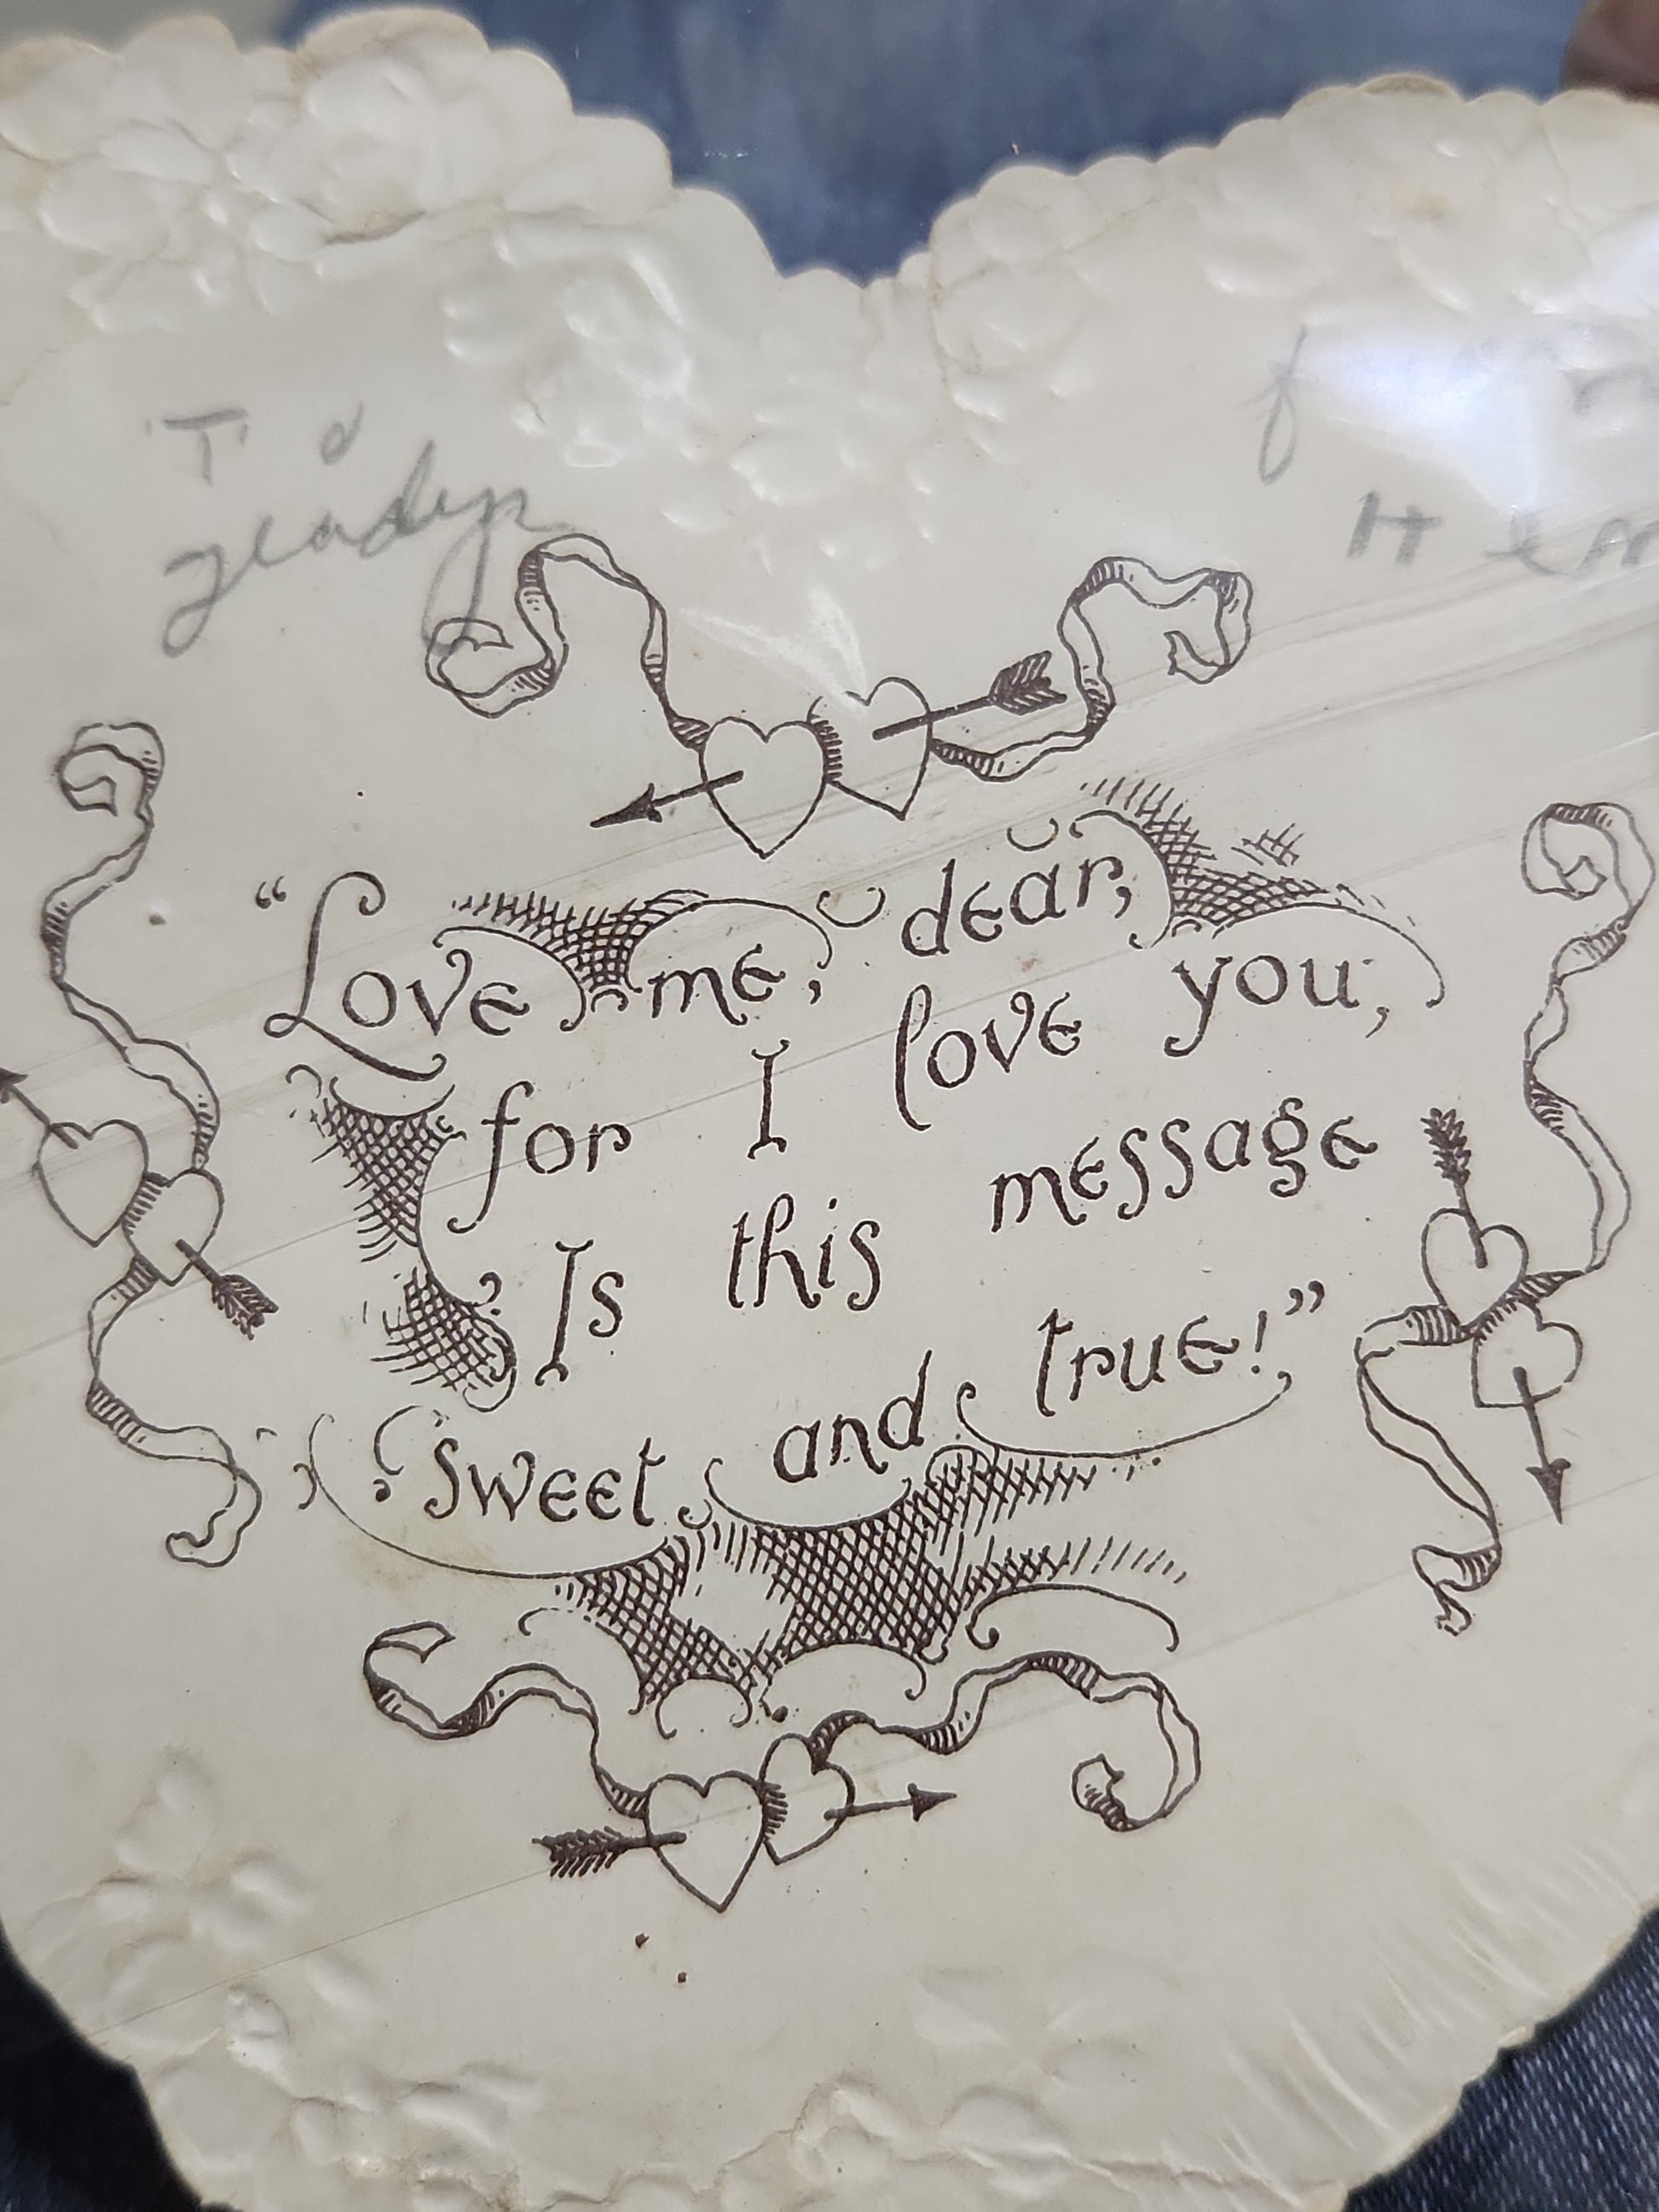 To
Gladys
“Love me, dear,
for I love you,
Is this message
sweet and true!”